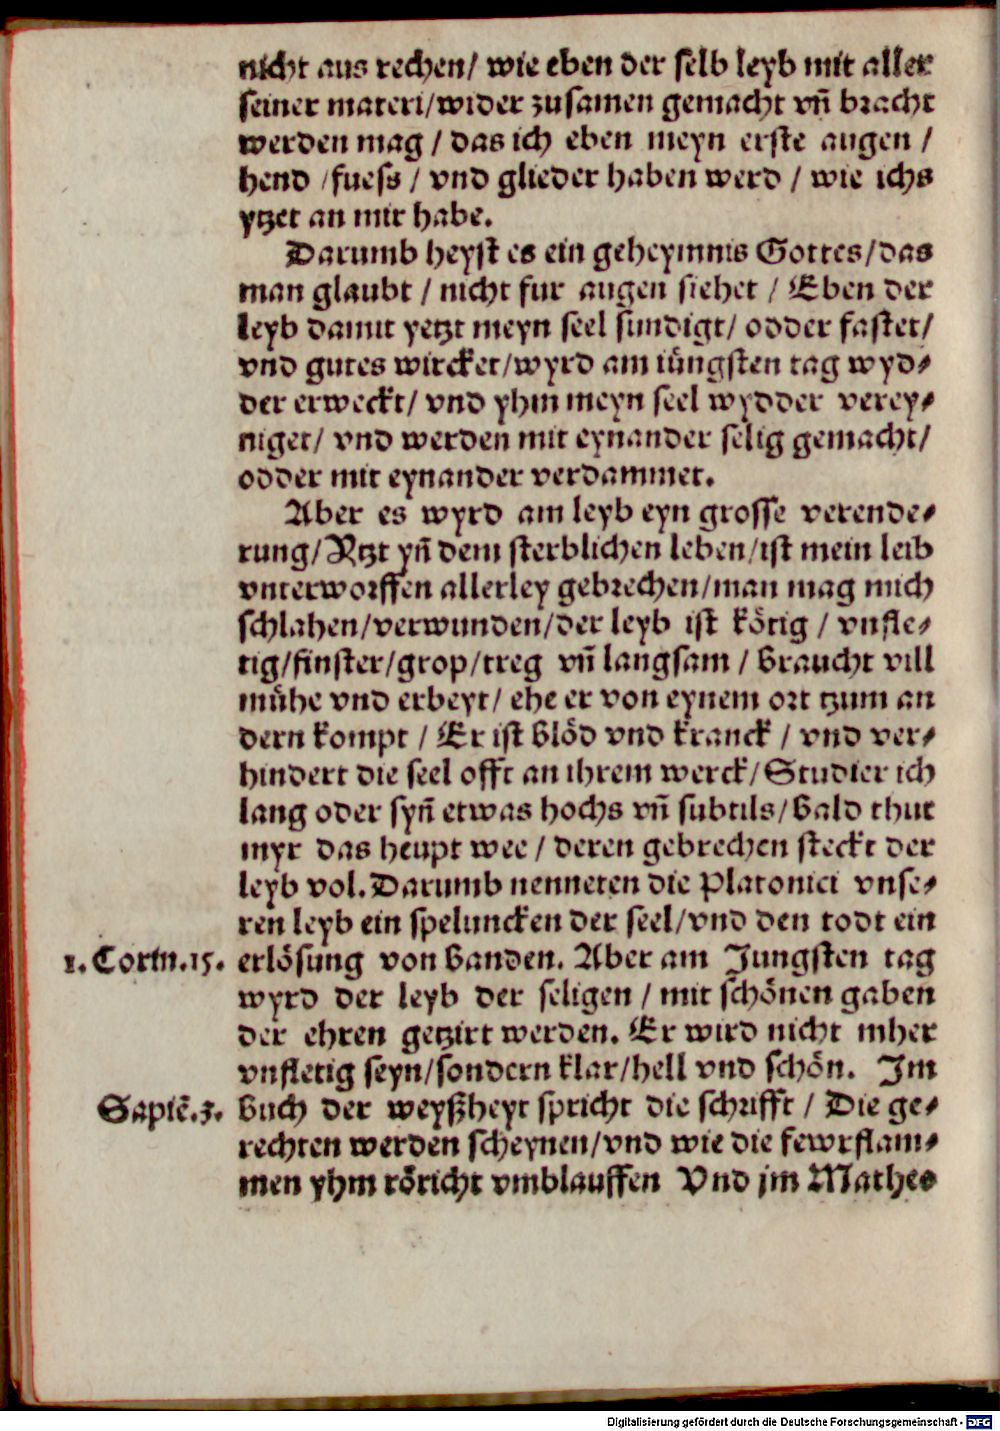 nicht aus rechen/ wie eben der selb leyb mit aller
seiner materi/wider zusamen gemacht vn̄ bracht
werden mag / das ich eben meyn erste augen /
hend /fuess / vnd glieder haben werd / wie ichs
ytzet an mir habe.
Darumb heyst es ein geheymnis Gottes/das
man glaubt / nicht fur augen siehet / Eben der
leyb damit yetzt meyn seel sundigt/ odder fastet/
vnd gutes wircket/wyrd am iüngsten tag wyd⸗
der erweckt/ vnd yhm meyn seel wydder verey⸗
niget/ vnd werden mit eynander selig gemacht/
odder mit eynander verdammet.
Aber es wyrd am leyb eyn grosse verende⸗
rung/Ytzt yn̄ dem sterblichen leben/ist mein leib
vnterworffen allerley gebrechen/man mag mich
schlahen/verwunden/der leyb ist kötig / vnfle⸗
tig/finster/grop/treg vn̄ langsam / braucht vill
mühe vnd erbeyt/ ehe er von eynem ort tzum an
dern kompt / Er ist blöd vnd kranck / vnd ver⸗
hindert die seel offt an ihrem werck/Studier ich
lang oder syn̄ etwas hochs vn̄ subtils/bald thut
myr das heupt wee / deren gebrechen steckt der
leyb vol. Darumb nenneten die Platonici vnse⸗
ren leyb ein speluncken der seel/vnd den todt ein
1. Corin. 15. erlösung von banden. Aber am Jungsten tag
wyrd der leyb der seligen / mit schönen gaben
der ehren getzirt werden. Er wird nicht mher
vnfletig seyn/sondern klar/hell vnd schön. Im
Sapiē. 3. buch der weyßheyt spricht die schrifft / Die ge⸗
rechten werden scheynen/vnd wie die fewrflam⸗
men yhm röricht vmblauffen Vnd jm Matheo
Digitalisierung gefördert durch die Deutsche Forschungsgemeinschaft - DFG